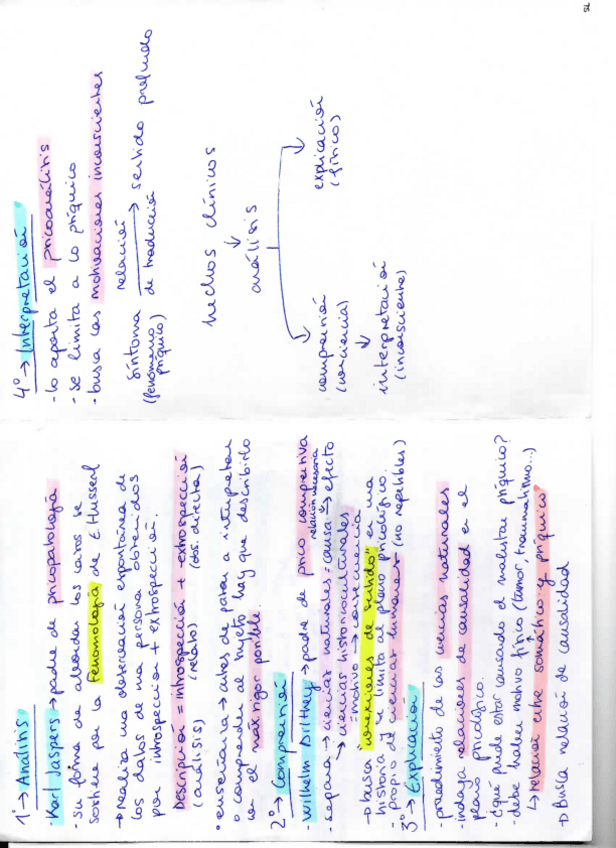 1º → Análisis
- Karl Jaspers → padre de psicopatología
- su forma de abordar los casos se
sostiene por la Fenomología de E.Husserl
→ realiza una observación espontánea de
los datos de una persona obtenidos
por introspección + extrospección.
Descripción = introspección + extrospección
(análisis) (relato) (obs. directa)
° enseñanza → antes de parar a interpretar
o comprender al sujeto hay que describirlo
con el máximo rigor posible.
2º → Comprensión
- Wilhelm Dilthey → padre de psico comprensiva
relación necesaria
- separa → ciencias naturales = causa → efecto
→ ciencias historicoculturales
= motivo → consecuencia
→ busca "conexiones de sentido" en una
historia y se limita al plano psicológico.
- propio de ciencias humanas (no repetibles)
3º → Explicación
- procedimiento de las ciencias naturales
- indaga relaciones de causalidad en el
plano psicológico.
- ¿qué puede estar causando el malestar psíquico?
- debe haber motivo físico (tumor, traumatismo...)
↳ relación entre somático y psíquico
→ Busca relación de causalidad
4º → Interpretación
- lo aporta el psicoanálisis
- se limita a lo psíquico
- busca las motivaciones inconscientes
síntoma relación → sentido profundo
(fenómeno psíquico) de traducción
hechos clínicos
↓
análisis
comprensión explicación
(conciencia) (físico)
↓
interpretación
(inconsciente)